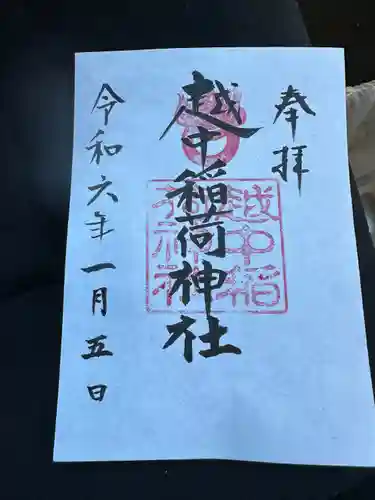 奉拝
越中稲荷神社
越中稲
荷神社
令和六年一月五日